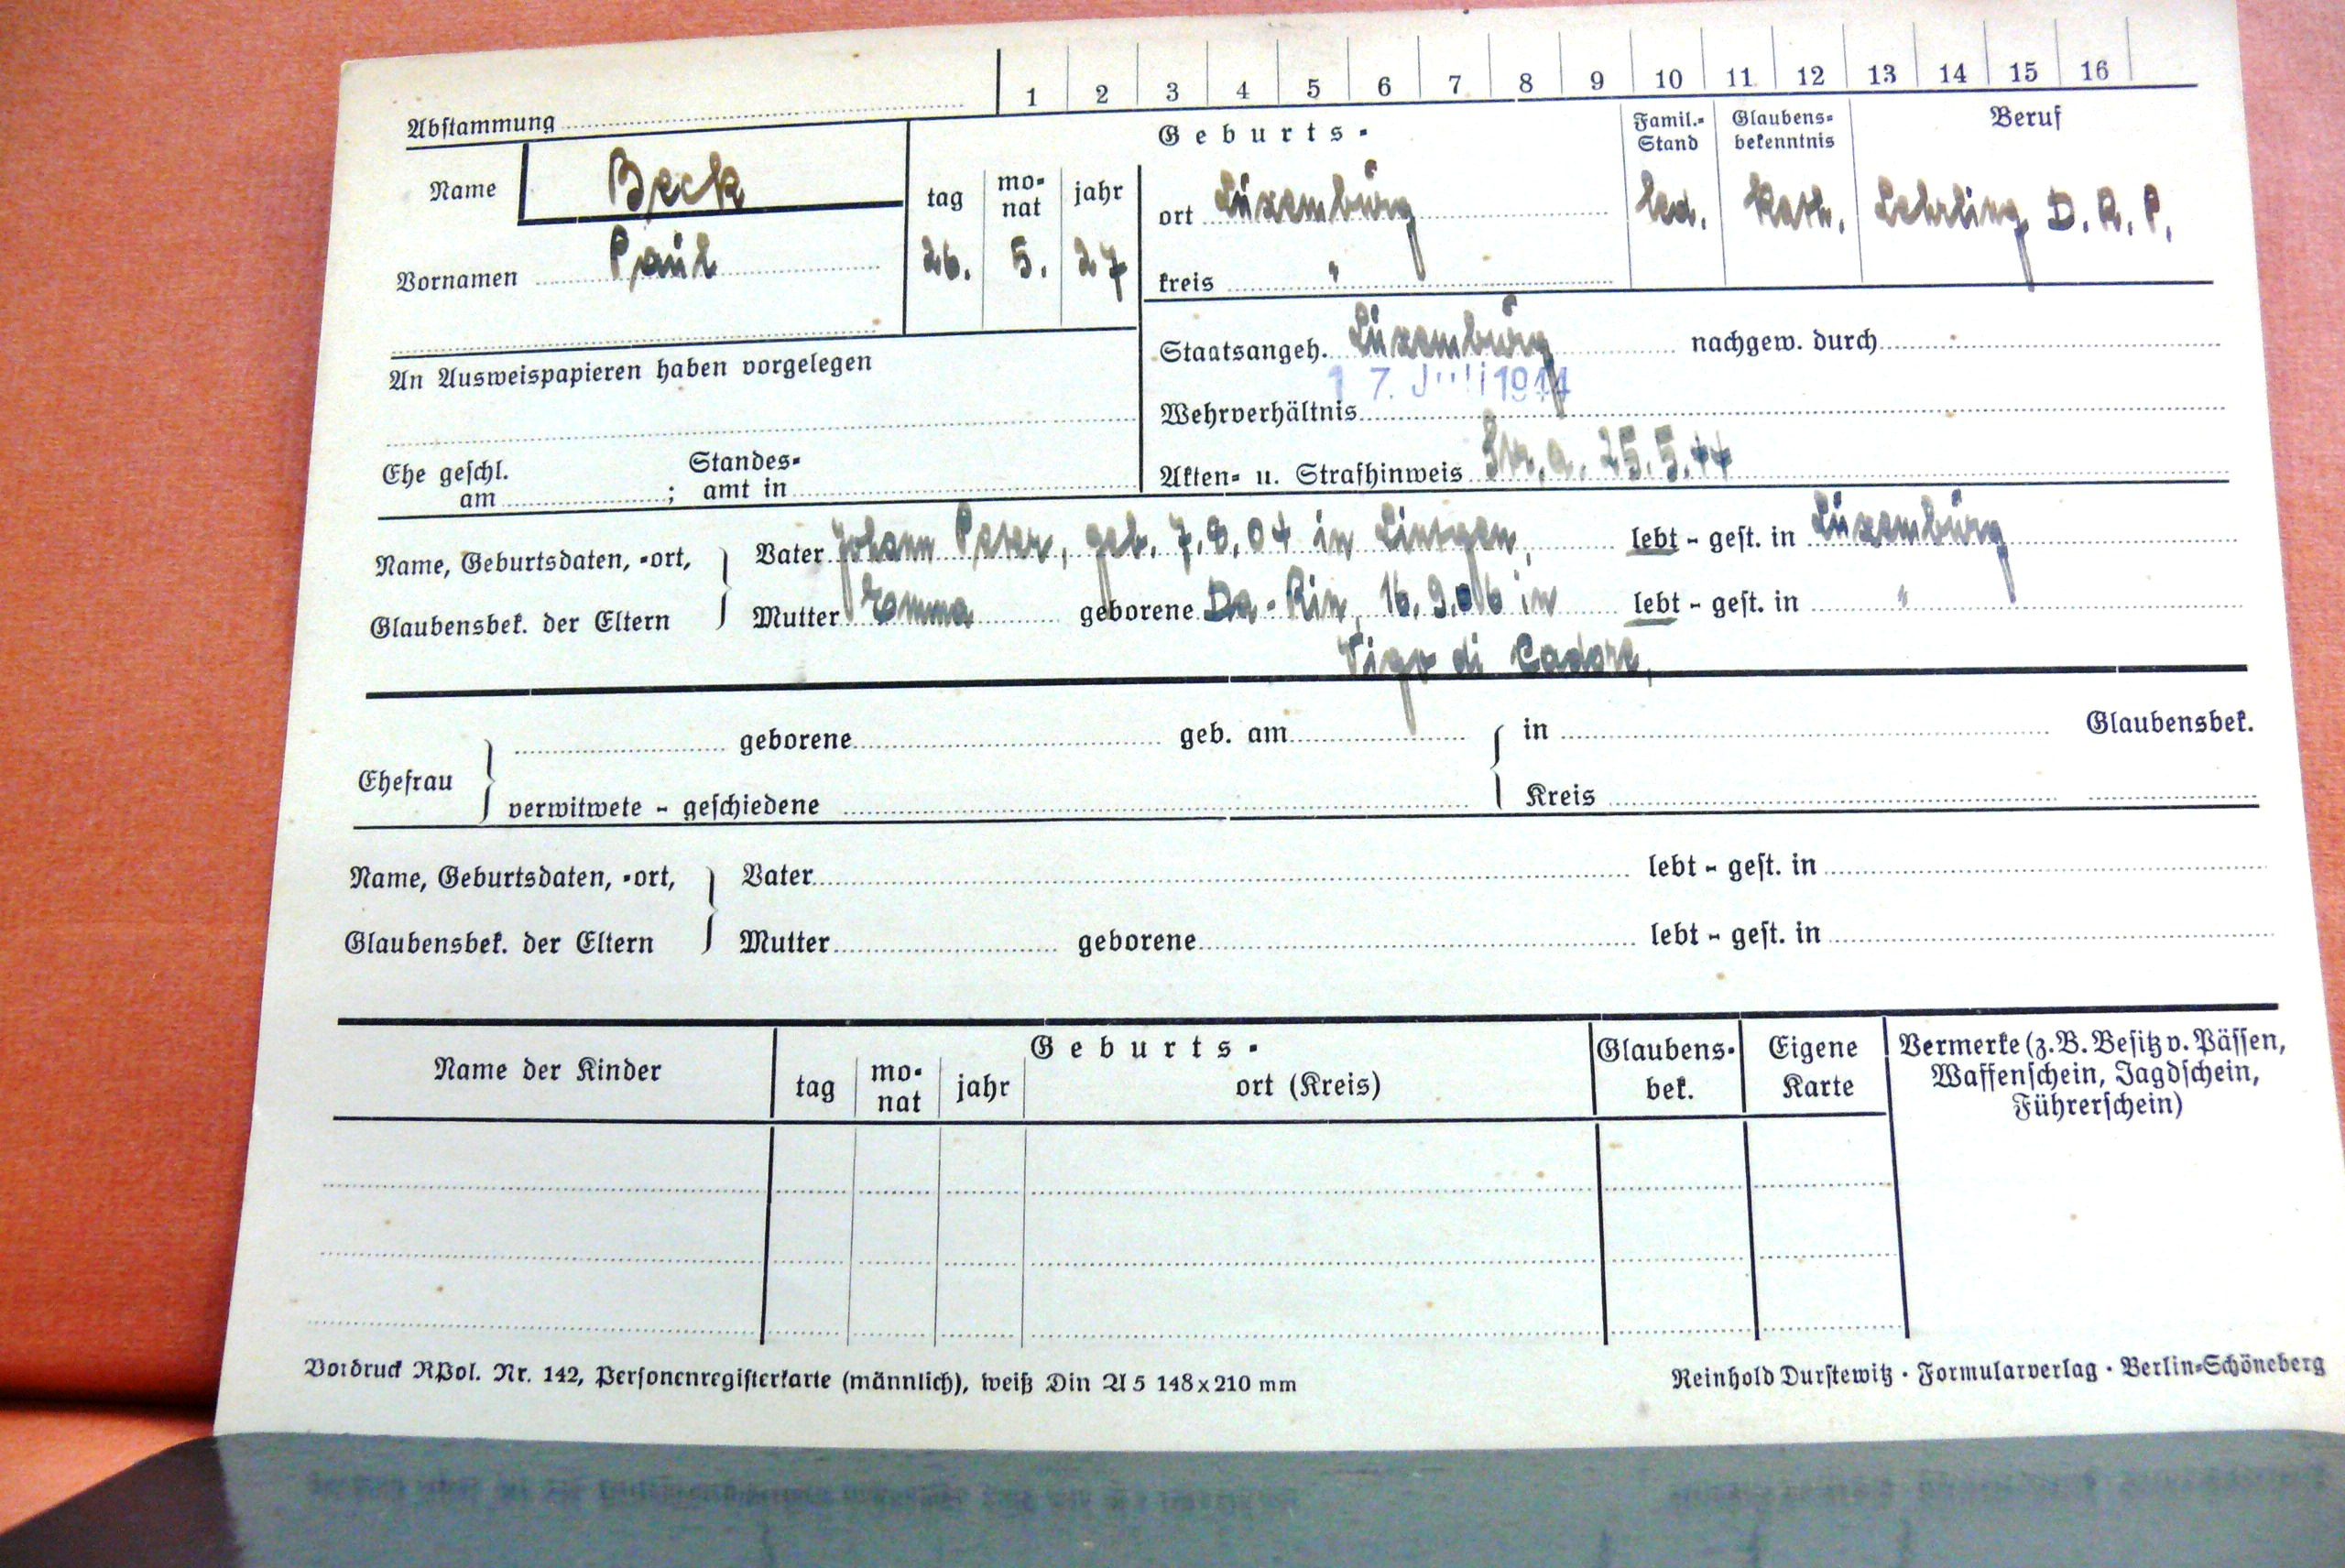 1 2 3 4 5 6 7 8 9 10 11 12 13 14 15 16
Abstammung
Geburts-
Famil.- Stand
Glaubens- bekenntnis
Beruf
Name Beck
tag
mo- nat
jahr
ort Luxemburg
led. kath. Lehrling D. R. P.
Vornamen Paul
26. 5. 27
kreis "
Staatsangeh. Luxemburg nachgew. durch
An Ausweispapieren haben vorgelegen
17. Juli 1944
Wehrverhältnis
Ehe geschl. am ; Standes- amt in
Akten- u. Strafhinweis Str. a. 25.5.44
Name, Geburtsdaten, -ort,
Glaubensbek. der Eltern
Vater Johann Peter, geb. 7.8.04 in Lintgen, lebt - gest. in Luxemburg
Mutter Emma geborene Da-Rin, 16.9.06 in lebt - gest. in "
Vigo di Cadore,
Ehefrau
geborene geb. am in Glaubensbek.
verwitwete - geschiedene Kreis
Name, Geburtsdaten, -ort,
Glaubensbek. der Eltern
Vater lebt - gest. in
Mutter geborene lebt - gest. in
Name der Kinder
Geburts-
tag
mo- nat
jahr
ort (Kreis)
Glaubens- bek.
Eigene Karte
Vermerke (z. B. Besitz v. Pässen,
Waffenschein, Jagdschein,
Führerschein)
Vordruck RPol. Nr. 142, Personenregisterkarte (männlich), weiß Din A 5 148x210 mm
Reinhold Durstewitz · Formularverlag · Berlin-Schöneberg